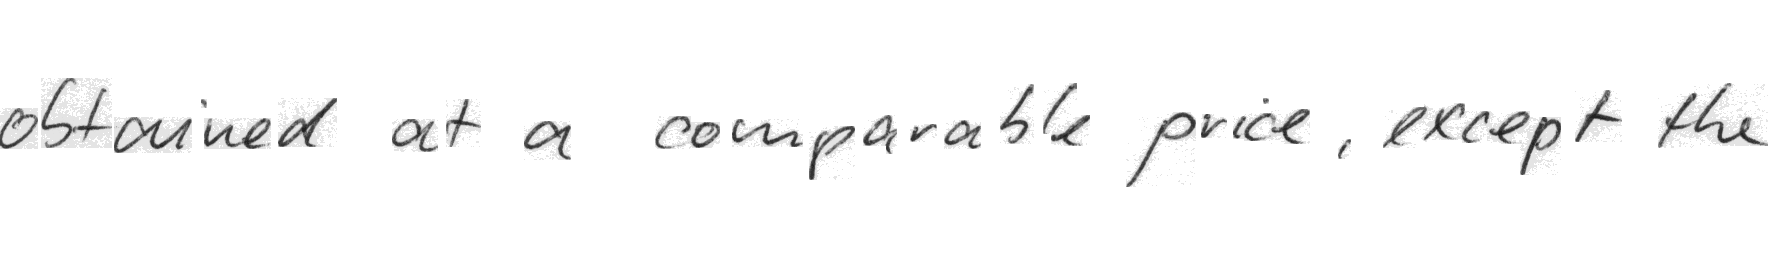 obtained at a comparable price, except the